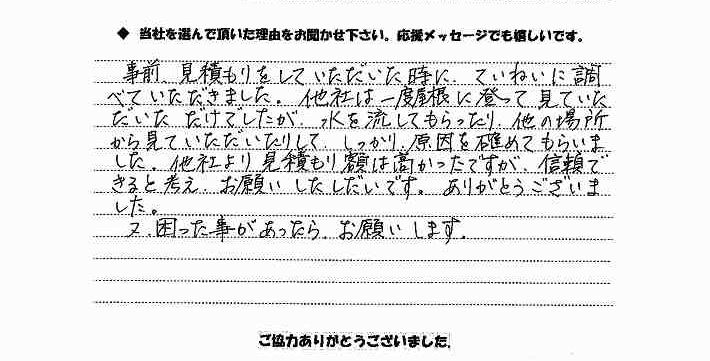 ◆ 当社を選んで頂いた理由をお聞かせ下さい。応援メッセージでも嬉しいです。
事前、見積もりをしていただいた時に、ていねいに調
べていただきました。他社は一度屋根に登って見ていた
だいた だけでしたが、水を流してもらったり、他の場所
から見ていただいたりして、しっかり、原因を確めてもらいま
した。他社より見積もり額は高かったですが、信頼で
きると考え、お願いしたしだいです。ありがとうございま
した。
又、困った事があったら、お願いします。
ご協力ありがとうございました。